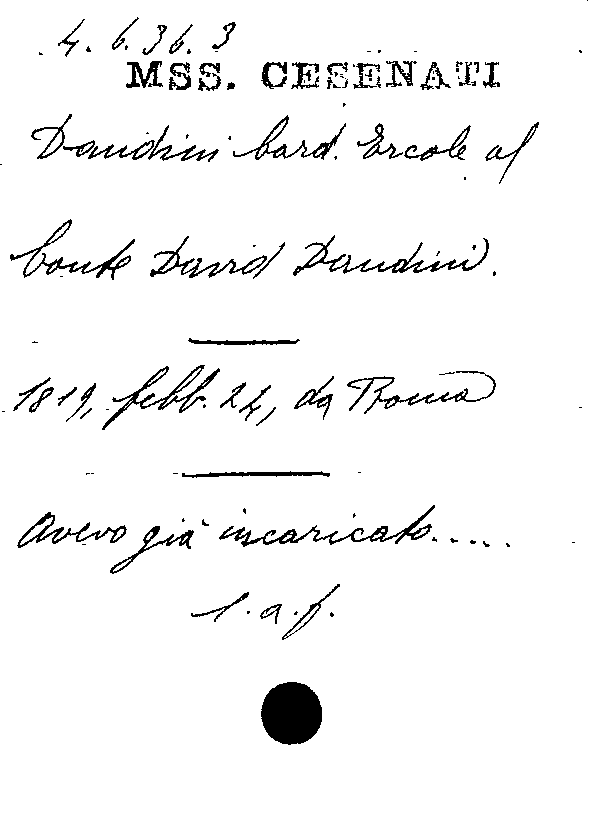 4. 6. 36. 3
MSS. CESENATI
Dandini Card. Ercole al
Conte David Dandini.
1819, febb. 24, da Roma
Avevo già incaricato.....
l. a. f.